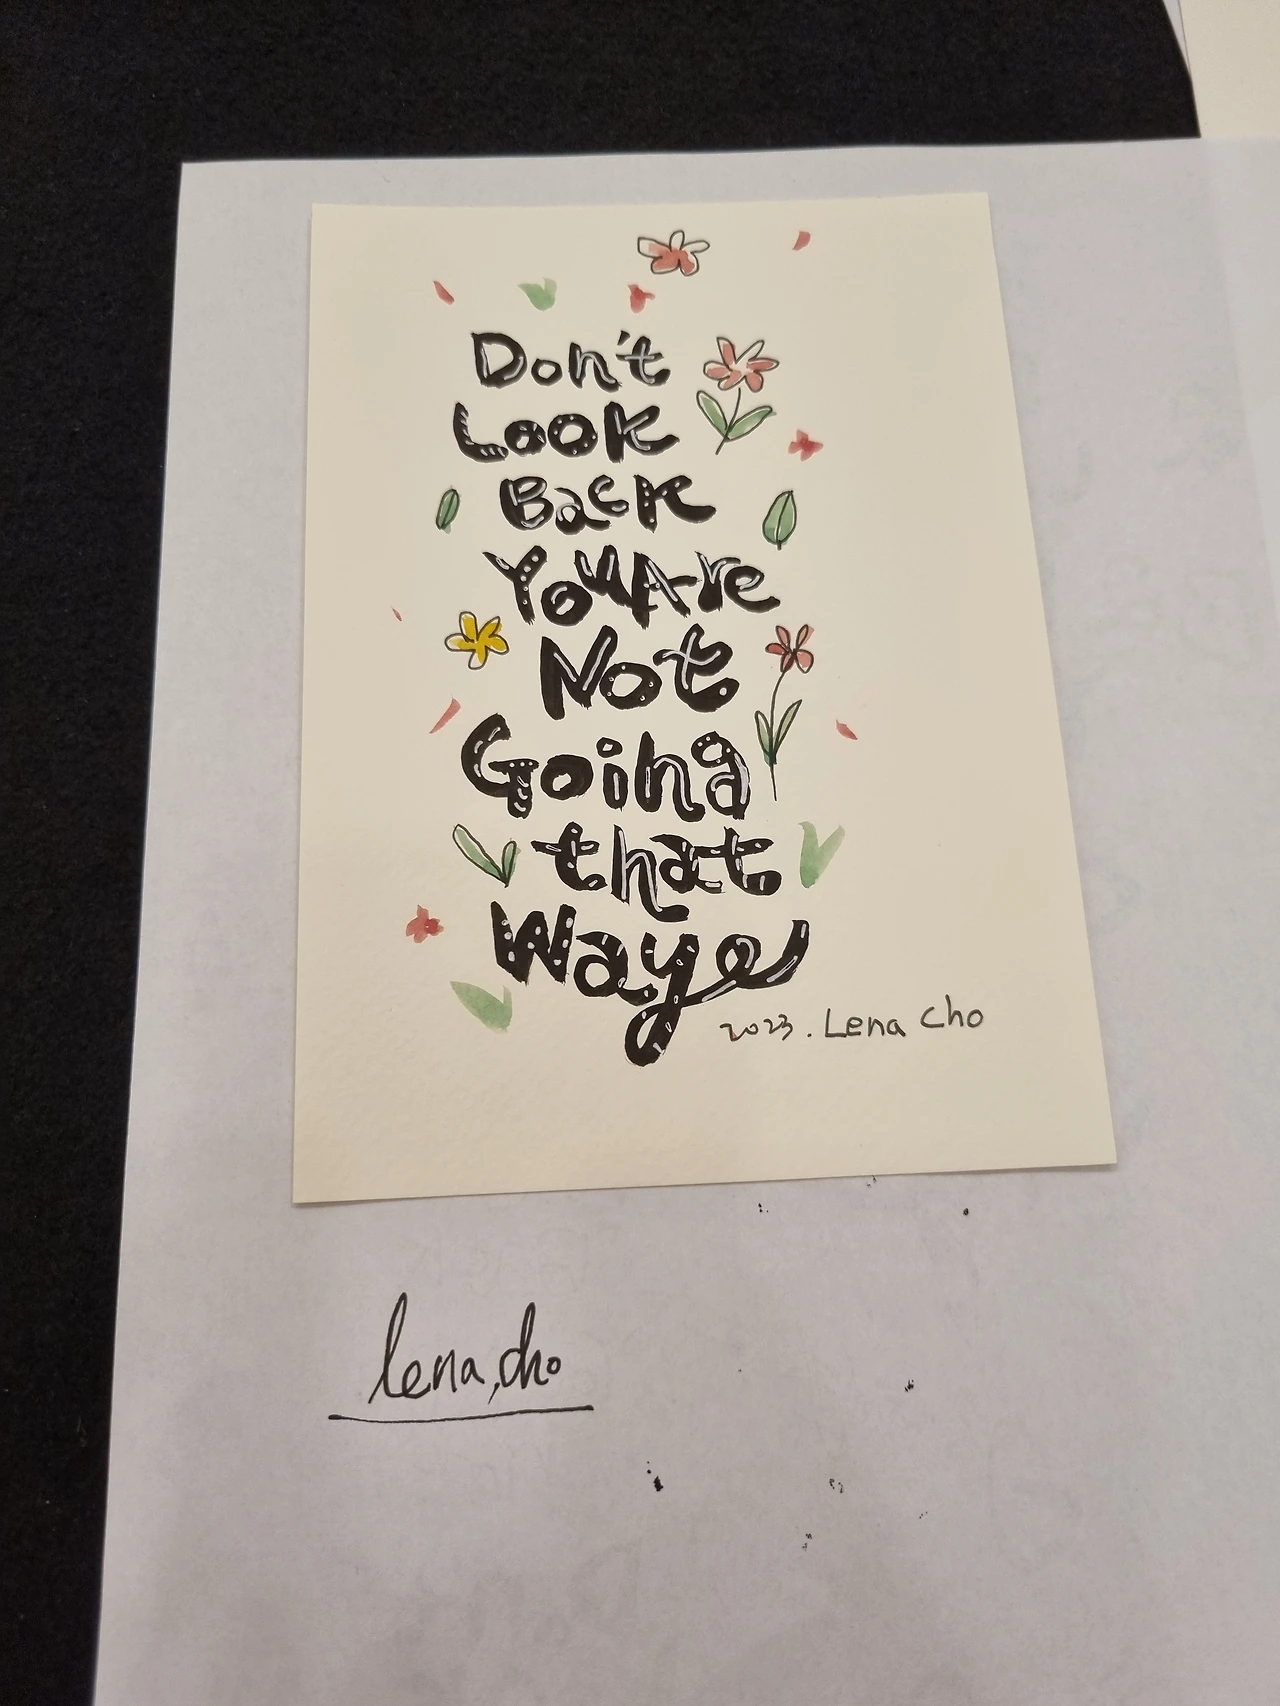 Don't
Look
Back
You Are
Not
Going
that
Waye
2023. Lena Cho
lena, cho